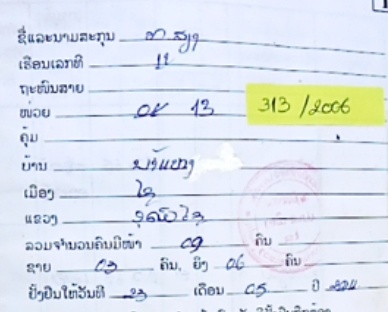 ຊື່ແລະນາມສະກຸນ
ເຮືອນເລກທີ 11
ຖະໜົນສາຍ
ໜ່ວຍ 13 313/2006
ຄຸ້ມ
ບ້ານ
ເມືອງ ໄຊ
ແຂວງ ອຸດົມໄຊ
ລວມຈຳນວນຄົນມີໜ້າ 09 ຄົນ
ຊາຍ 03 ຄົນ, ຍິງ 06 ຄົນ
ຢັ້ງຢືນໃຫ້ວັນທີ 23 ເດືອນ 05 ປີ